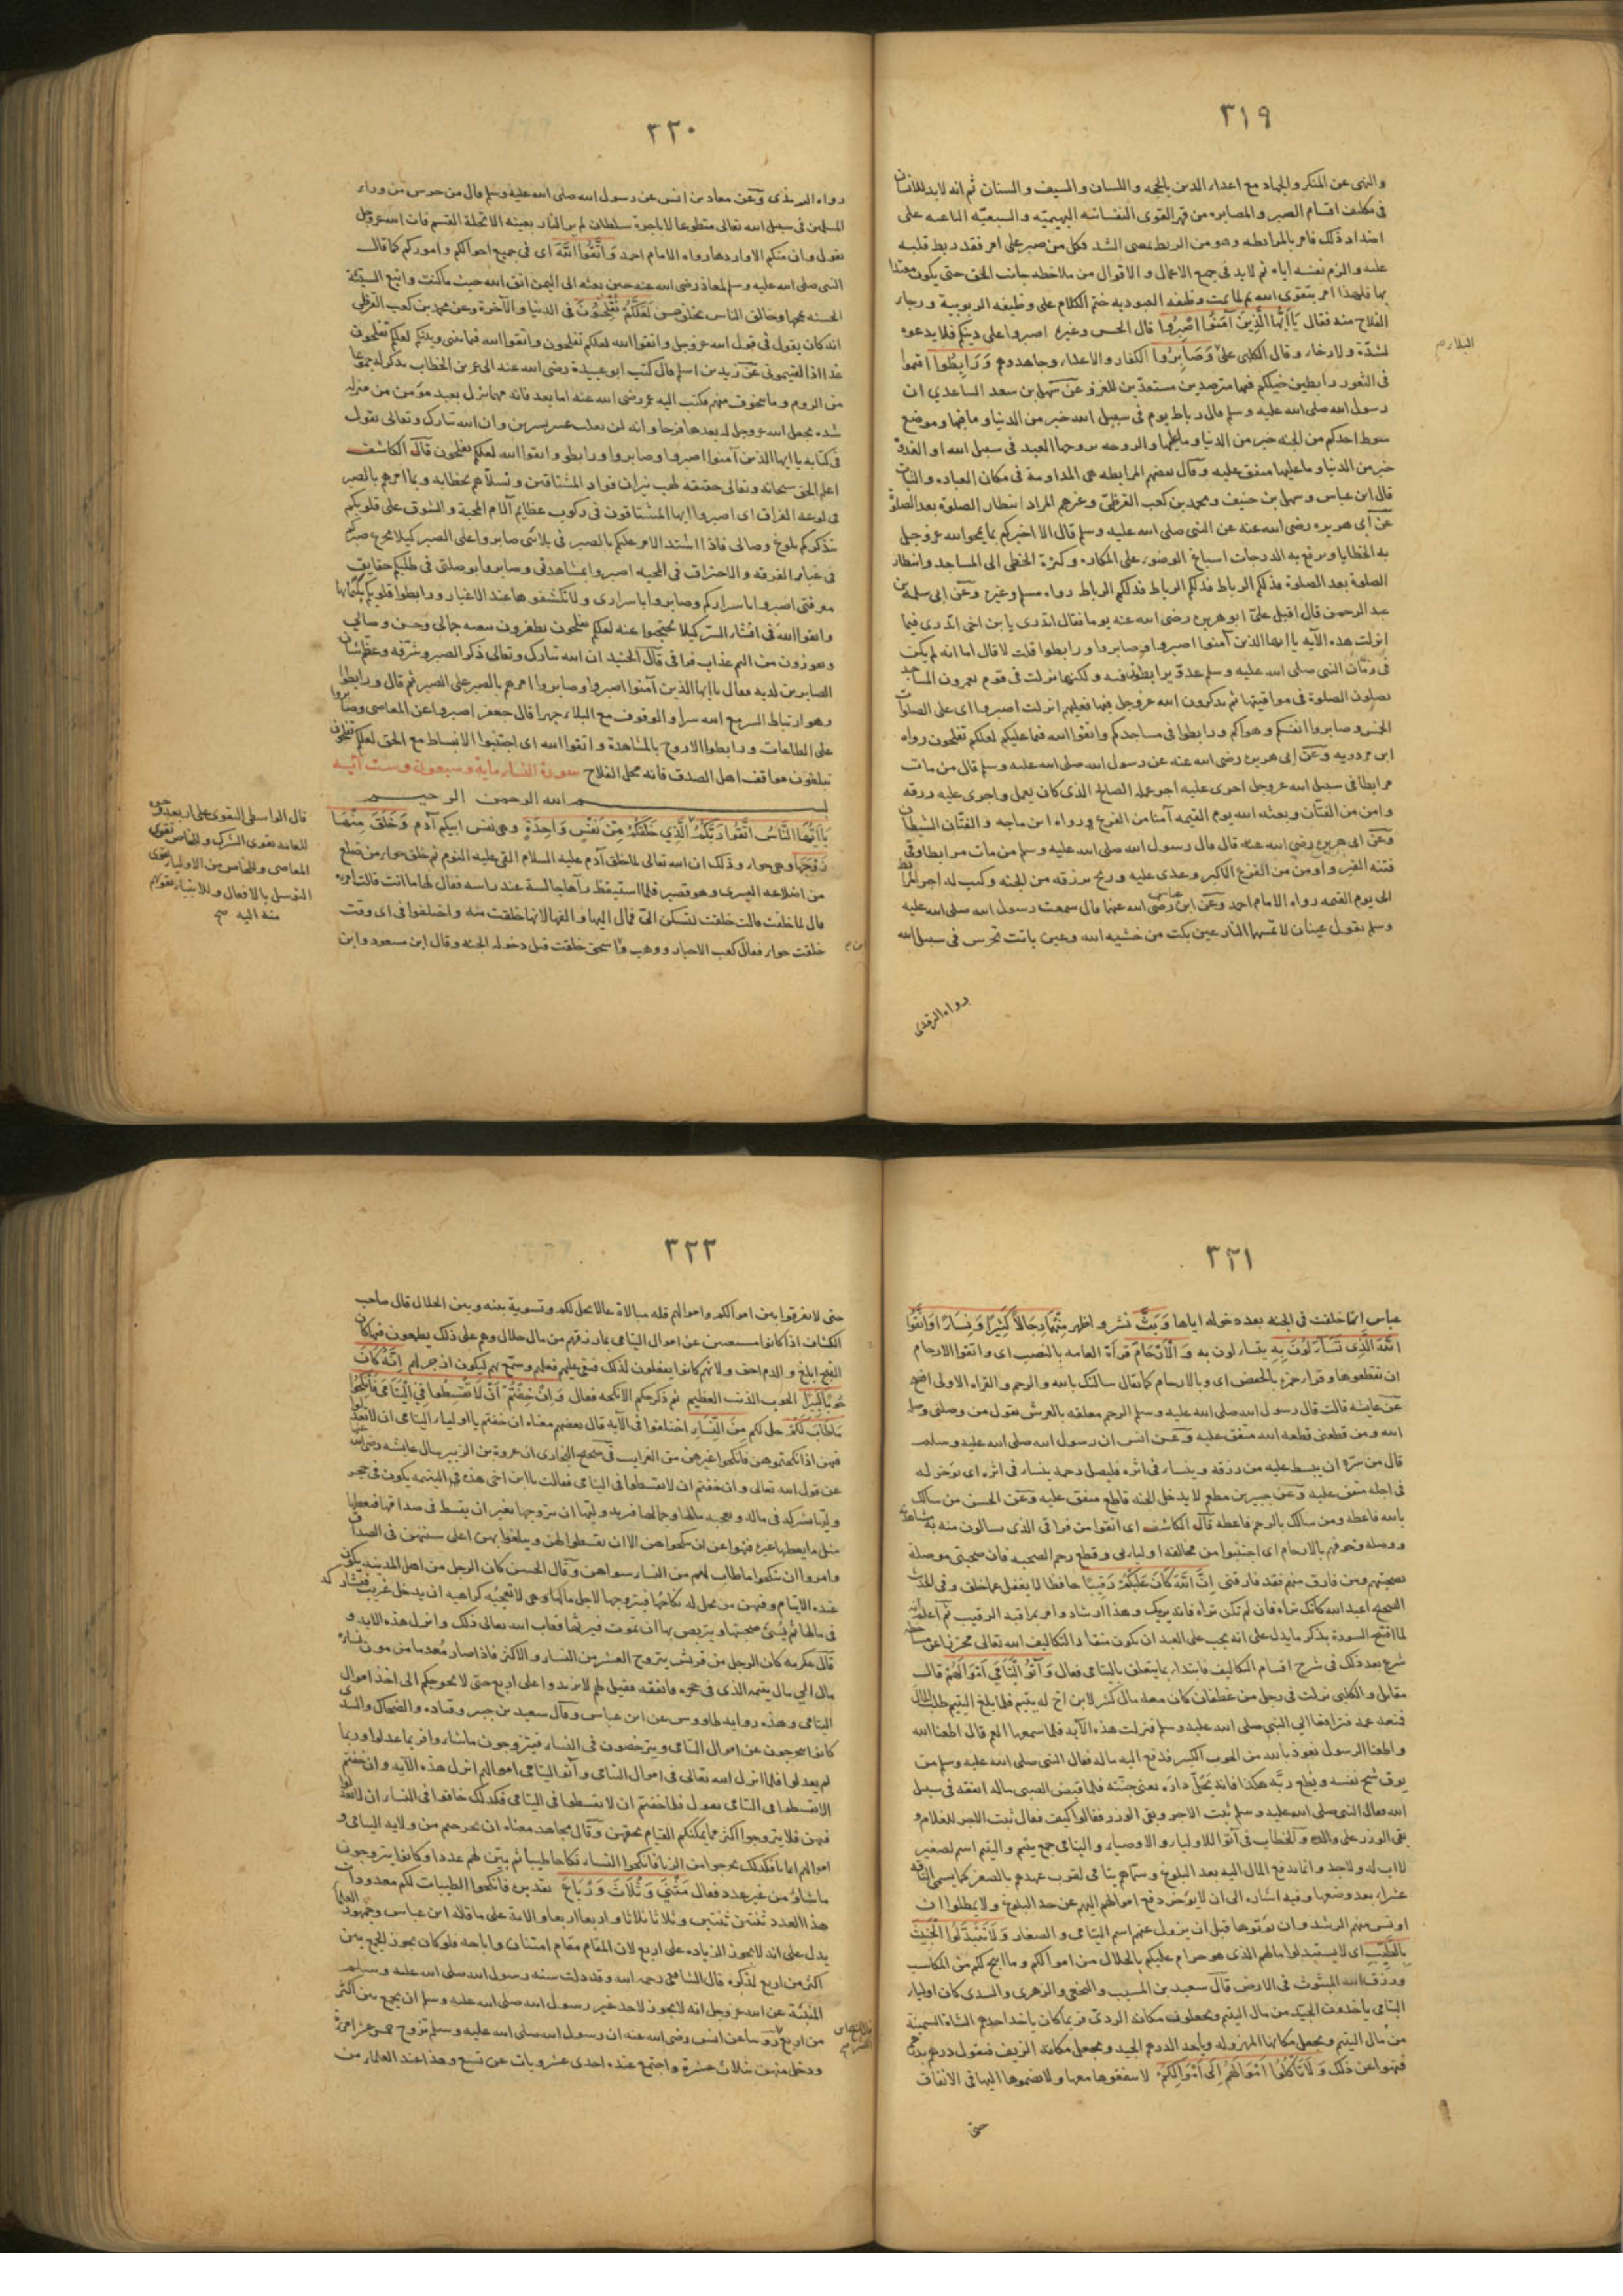 ٣١٩
والنهى عن المنكر والجهاد مع اعداء الدين بالحجه واللسان والسيف والسنان ثم انه لا بد للانسان
فى تكليف اقسام الصبر والمصابره من قهر القوى النفسانيه البهيميه والسبعيه الباعثه على
اضداد ذلك فامر بالمرابطه وهو من الربط بمعنى الشد فكل من صبر على امر فقد ربط قلبه
عليه والزم نفسه اياه ثم لا بد فى جميع الاعمال والاقوال من ملاحظه جانب الحق حتى يكون معتدا
بها فلهذا امر بتقوى الله ثم لما تمت وظيفه العبوديه ختم الكلام على وظيفه الربوبية ورجاء
الفلاح منه فقال يَا أَيُّهَا الَّذِينَ آمَنُوا اصْبِرُوا قال الحسن وغيره اصبروا على دينكم فلا يدعوه
لشدّة ولا رخاء وقال الكلبى على وَصَابِرُوا الكفار والاعداء وجاهدوهم وَرَابِطُوا اقيموا
فى الثغور رابطين خيلكم فيها مترصدين مستعدّين للغزو عن سهل بن سعد الساعدي ان
رسول الله صلى الله عليه وسلم قال رباط يوم فى سبيل الله خير من الدنيا وما فيها وموضع
سوط احدكم من الجنه خير من الدنيا وما عليها والروحه يروحها العبد فى سبيل الله او الغدوة
خير من الدنيا وما عليها متفق عليه وقال بعضهم المرابطه هى المداومة فى مكان العباده والثبات
قال ابن عباس وسهل بن حنيف ومحمد بن كعب القرظى وغيرهم المراد انتظار الصلوة بعد الصلوة
عن ابى هريره رضى الله عنه عن النبى صلى الله عليه وسلم قال الا اخبركم بما يمحو الله عز وجل
به الخطايا ويرفع به الدرجات اسباغ الوضوء على المكاره وكثرة الخطى الى المساجد وانتظار
الصلوة بعد الصلوة فذلكم الرباط فذلكم الرباط فذلكم الرباط رواه مسلم وغيره وعن ابى سلمة بن
عبد الرحمن قال اقبل علىّ ابو هريره رضى الله عنه يوما فقال اتدرى يا بن اخى اتدرى فيما
انزلت هذه الآيه يا ايها الذين آمنوا اصبروا وصابروا ورابطوا قلت لا قال اما انه لم يكن
فى زمان النبى صلى الله عليه وسلم عدوّ يرابطون فيه ولكنها نزلت فى قوم يعمرون المساجد
يصلون الصلوة فى مواقيتها ثم يذكرون الله عز وجل فيها فعليهم انزلت اصبروا اى على الصلوات
الخمس وصابروا انفسكم وهواكم ورابطوا فى مساجدكم واتقوا الله فيما عليكم لعلكم تفلحون رواه
ابن مردويه وعن ابى هريره رضى الله عنه عن رسول الله صلى الله عليه وسلم قال من مات
مرابطا فى سبيل الله عز وجل اجرى عليه اجر عمله الصالح الذى كان يعمل واجرى عليه رزقه
وامن من الفتّان وبعثه الله يوم القيمه آمنا من الفزع ورواه ابن ماجه والفتّان الشيطان
وعن ابى هريره رضى الله عنه قال قال رسول الله صلى الله عليه وسلم من مات مرابطا وقى
فتنة القبر واومن من الفزع الاكبر وغدى عليه وريح برزقه من الجنه وكتب له اجر المرابط
الى يوم القيمه رواه الامام احمد وعن ابن عباس رضى الله عنهما قال سمعت رسول الله صلى الله عليه
وسلم يقول عينان لا تمسهما النار عين بكت من خشيه الله وعين باتت تحرس فى سبيل الله
رواه الترمذى
٣٢٠
رواه الترمذى وعن معاذ بن انس عن رسول الله صلى الله عليه وسلم قال من حرس من وراء
المسلمين فى سبيل الله تعالى متطوعا لا باجرة سلطان لم ير النار بعينه الا تحلة القسم فان الله عز وجل
يقول وان منكم الا واردها رواه الامام احمد وَاتَّقُوا اللَّهَ اى فى جميع احوالكم واموركم كما قال
النبى صلى الله عليه وسلم لمعاذ رضى الله عنه حين بعثه الى اليمن اتق الله حيث ما كنت واتبع السيئة
الحسنه تمحها وخالق الناس بخلق حسن لَعَلَّكُمْ تُفْلِحُونَ فى الدنيا والآخرة وعن محمد بن كعب القرظى
انه كان يقول فى قول الله عز وجل واتقوا الله لعلكم تفلحون واتقوا الله فيما بينى وبينكم لعلكم تفلحون
غدا اذا لقيتمونى عن زيد بن اسلم قال كتب ابو عبيدة رضى الله عنه الى عمر بن الخطاب يذكر له جموعا
من الروم وما يتخوف منهم فكتب اليه عمر رضى الله عنه اما بعد فانه مهما نزل بعبد مؤمن من منزله
شده يجعل الله عز وجل له بعدها فرجا وانه لن يغلب عسر يسرين وان الله تبارك وتعالى يقول
فى كتابه يا ايها الذين آمنوا اصبروا وصابروا ورابطوا واتقوا الله لعلكم تفلحون قال الكاشف
اعلم الحق سبحانه وتعالى حقيقه لهب نيران فواد المشتاقين وتسلّاهم بخطابه وبما امرهم بالصبر
فى لوعه الفراق اى اصبروا ايها المشتاقون فى ركوب عظايم آلام المحبة والشوق على قلوبكم
وهو ارتباط السر مع الله سرا والوقوف مع البلاء جهرا قال جعفر اصبروا عن المعاصى وصابروا
على الطاعات ورابطوا الاروح بالمشاهدة واتقوا الله اى اجتنبوا الانبساط مع الحق لعلكم تفلحون
تبلغون مواقف اهل الصدق فانه محل الفلاح سورة النساء مايه وسبعون وست آيه
بسم الله الرحمن الرحيم
يَا أَيُّهَا النَّاسُ اتَّقُوا رَبَّكُمُ الَّذِي خَلَقَكُمْ مِّنْ نَفْسٍ وَاحِدَةٍ وهى نفس ابيكم آدم وَخَلَقَ مِنْهَا
زَوْجَهَا وهى حواء وذلك ان الله تعالى لما خلق آدم عليه السلام القى عليه النوم ثم خلق حواء من ضلع
من اضلاعه اليسرى وهو قصير فلما استيقظ رآها جالسة عند راسه فقال لها ما انت قالت امرءة
قال لما خلقت قالت خلقت لتسكن الىّ فمال اليها والفها لانها خلقت منه واختلفوا فى اى وقت
خلقت حواء فقال كعب الاحبار ووهب وابن اسحق خلقت قبل دخوله الجنه وقال ابن مسعود وابن
قال الواسطى التقوى على اربعه وجوه
للعامه تقوى الشرك وللخاص تقوى
المعاصى وللخاص من الاولياء تقوى
التوسل بالافعال وللانبياء تقواهم
منه اليه صح
٣٢١
عباس انما خلقت فى الجنه بعد دخوله اياها وَبَثَّ نشر واظهر مِنْهُمَا رِجَالًا كَثِيرًا وَنِسَاءً وَاتَّقُوا
اللَّهَ الَّذِي تَسَاءَلُونَ بِهِ يتساءلون به وَالْأَرْحَامَ قرأة العامه بالنصب اى واتقوا الارحام
ان تقطعوها وقراء حمزه بالخفض اى وبالارحام كما يقال سالتك بالله والرحم والقراه الاولى افصح
عن عايشه قالت قال رسول الله صلى الله عليه وسلم الرحم معلقه بالعرش تقول من وصلنى وصله
الله ومن قطعنى قطعه الله متفق عليه وعن انس ان رسول الله صلى الله عليه وسلم
قال من سرّه ان يبسط عليه من رزقه وينساء فى اثره فليصل رحمه ينساء فى اثره اى يؤخر له
فى اجله متفق عليه وعن جبير بن مطعم لا يدخل الجنه قاطع متفق عليه وعن الحسن من سالك
بالله فاعطه ومن سالك بالرحم فاعطه قال الكاشف اى اتقوا من فراقى الذى تسالون منه به مشاهدته
ووصله وخوفهم بالارحام اى اجتنبوا من مخالفه اوليايى وقطع رحم الصحبه فان صحبتى موصلة
بصحبتهم ومن فارق منهم فقد فارقنى إِنَّ اللَّهَ كَانَ عَلَيْكُمْ رَقِيبًا حافظا لا يغفل عما خلق وفى الحديث
الصحيح اعبد الله كانك تراه فان لم تكن تراه فانه يريك وهذا ارشاد وامر بمراقبه الرقيب ثم اعلم انه
لما افتتح السورة بذكر ما يدل على انه يجب على العبد ان يكون منقادا لتكاليف الله تعالى محترزا عن مساخطه
شرع بعد ذلك فى شرح اقسام التكاليف فابتداء بما يتعلق باليتامى فقال وَآتُوا الْيَتَامَى أَمْوَالَهُمْ قال
مقاتل والكلبى نزلت فى رجل من غطفان كان معه مال كثير لابن اخ له يتيم فلما بلغ اليتيم طلب المال
فمنعه عمه فترافعا الى النبى صلى الله عليه وسلم فنزلت هذه الآيه فلما سمعها العم قال اطعنا الله
واطعنا الرسول نعوذ بالله من الحوب الكبير فدفع اليه ماله فقال النبى صلى الله عليه وسلم من
يوق شح نفسه ويطع ربّه هكذا فانه يحلّ داره يعنى جنّته فلما قبض الصبى ماله انفقه فى سبيل
الله فقال النبى صلى الله عليه وسلم ثبت الاجر وبقى الوزر فقالوا كيف فقال ثبت الاجر للغلام و
بقى الوزر على والده والخطاب فى آتوا للاولياء والاوصياء واليتامى جمع يتيم واليتيم اسم لصغير
لا اب له ولا جد وانما يدفع المال اليه بعد البلوغ وسمّاهم يتامى لقرب عهدهم بالصغر كما يسمى الناقه
عشراء بعد وضعها وفيه اشاره الى ان لا يؤخر دفع اموالهم اليهم عن حد البلوغ ولا يمطلوا ان
اونس منهم الرشد وان يؤتوها قبل ان يزول عنهم اسم اليتامى والصغار وَلَا تَتَبَدَّلُوا الْخَبِيثَ
بِالطَّيِّبِ اى لا يستبدلوا مالهم الذى هو حرام عليكم بالحلال من اموالكم وما ابيح لكم من المكاسب
ورزق الله المبثوث فى الارض قال سعيد بن المسيب والنخعى والزهرى والسدى كان اولياء
اليتامى ياخذون الجيّد من مال اليتيم ويجعلون مكانه الردىّ فربما كان ياخذ احدهم الشاة السمينة
من مال اليتيم ويجعل مكانها المهزوله ويأخذ الدرهم الجيد ويجعل مكانه الزيف فيقول درهم بدرهم
فنهوا عن ذلك وَلَا تَأْكُلُوا أَمْوَالَهُمْ إِلَى أَمْوَالِكُمْ لا تنفقوها معها ولا تضموها اليها فى الانفاق
حتى
٣٢٢
حتى لا تفرقوا بين اموالكم واموالهم قله مبالاة بما لا يحل لكم وتسوية بينه وبين الحلال قال صاحب
الكشاف اذا كانوا مستغنين عن اموال اليتامى بما رزقهم من مال حلال وهم على ذلك يطمعون فيها كان
القبح ابلغ والذم احق ولانهم كانوا يفعلون كذلك فنعى عليهم فعلهم وسمّع بهم ليكون ازجر لهم إِنَّهُ كَانَ
حُوبًا كَبِيرًا الحوب الذنب العظيم ثم ذكر حكم الانكحه فقال وَإِنْ خِفْتُمْ أَنْ لَا تُقْسِطُوا فِي الْيَتَامَى فَانْكِحُوا
مَا طَابَ لَكُمْ حل لكم مِنَ النِّسَاءِ اختلفوا فى الآيه قال بعضهم معناه ان خفتم يا اولياء اليتامى ان لا تعدلوا
فيهن اذا نكحتموهن فانكحوا غيرهن من الغرايب فى صحيح البخارى ان عروة بن الزبير سال عايشه رضى الله عنها
عن قول الله تعالى وان خفتم ان لا تقسطوا فى اليتامى فقالت يا ابن اختى هذه فى اليتيمه يكون فى حجر
وليها تشركه فى ماله ويعجبه مالها وجمالها فيريد وليّها ان يتزوجها بغير ان يقسط فى صداقها فيعطيها
مثل ما يعطيها غيره فنهوا عن ان ينكحوهن الا ان يقسطوا لهن ويبلغوا بهن اعلى سنتهن فى الصداق
وامروا ان ينكحوا ما طاب لهم من النساء سواهن وقال الحسن كان الرجل من اهل المدينه يكون
عنده الايتام وفيهن من يحل له نكاحها فيتزوجها لاجل مالها وهى لا تعجبه كراهيه ان يدخل غريب فيشاركه
فى مالها ثم يُسئ صحبتها ويتربص بها ان تموت فيرثها فعاب الله تعالى ذلك وانزل هذه الايه و
قال عكرمه كان الرجل من قريش يتزوج العشر من النساء والاكثر فاذا صار مُعدما من مون نسائه
مال الى مال يتيمه الذى فى حجره فانفقه فقيل لهم لا تزيدوا على اربع حتى لا يحوجكم الى اخذ اموال
اليتامى وهذه روايه طاووس عن ابن عباس وقال سعيد بن جبير وقتاده والضحاك والسدى
كانوا يتحرجون عن اموال اليتامى ويترخصون فى النساء فيتزوجون ما شاءوا فربما عدلوا وربما
لم يعدلوا فلما انزل الله تعالى فى اموال اليتامى وآتوا اليتامى اموالهم انزل هذه الآيه وان خفتم
الا تقسطوا فى اليتامى يقول فلما خفتم ان لا تقسطوا فى اليتامى فكذلك خافوا فى النساء ان لا تعدلوا
فيهن فلا يتزوجوا اكثر مما يمكنكم القيام بحقهن وقال مجاهد معناه ان تحرجتم من ولايه اليتامى و
اموالهم ايمانا فكذلك تحرجوا من الزنا فانكحوا النساء نكاحا طيبا ثم بيّن لهم عددا وكانوا يتزوجون
ما شاؤا من غير عدد فقال مَثْنَى وَثُلَاثَ وَرُبَاعَ تقديره فانكحوا الطيبات لكم معدودات
هذا العدد ثنتين ثنتين وثلاثا ثلاثا واربعا اربعا والايه على ما قاله ابن عباس وجمهور العلما
يدل على انه لا يجوز الزياده على اربع لان المقام مقام امتنان واباحه فلو كان يجوز الجمع بين
اكثر من اربع لذكره قال الشافعى رحمه الله وقد دلت سنه رسول الله صلى الله عليه وسلم
المبيّنة عن الله عز وجل انه لا يجوز لاحد غير رسول الله صلى الله عليه وسلم ان يجمع بين اكثر
من اربع روينا عن انس رضى الله عنه ان رسول الله صلى الله عليه وسلم تزوج خمس عشر امرءة
ودخل منهن بثلاث عشرة واجتمع عنده احدى عشر وبات عن تسع وهذا عند العلماء من